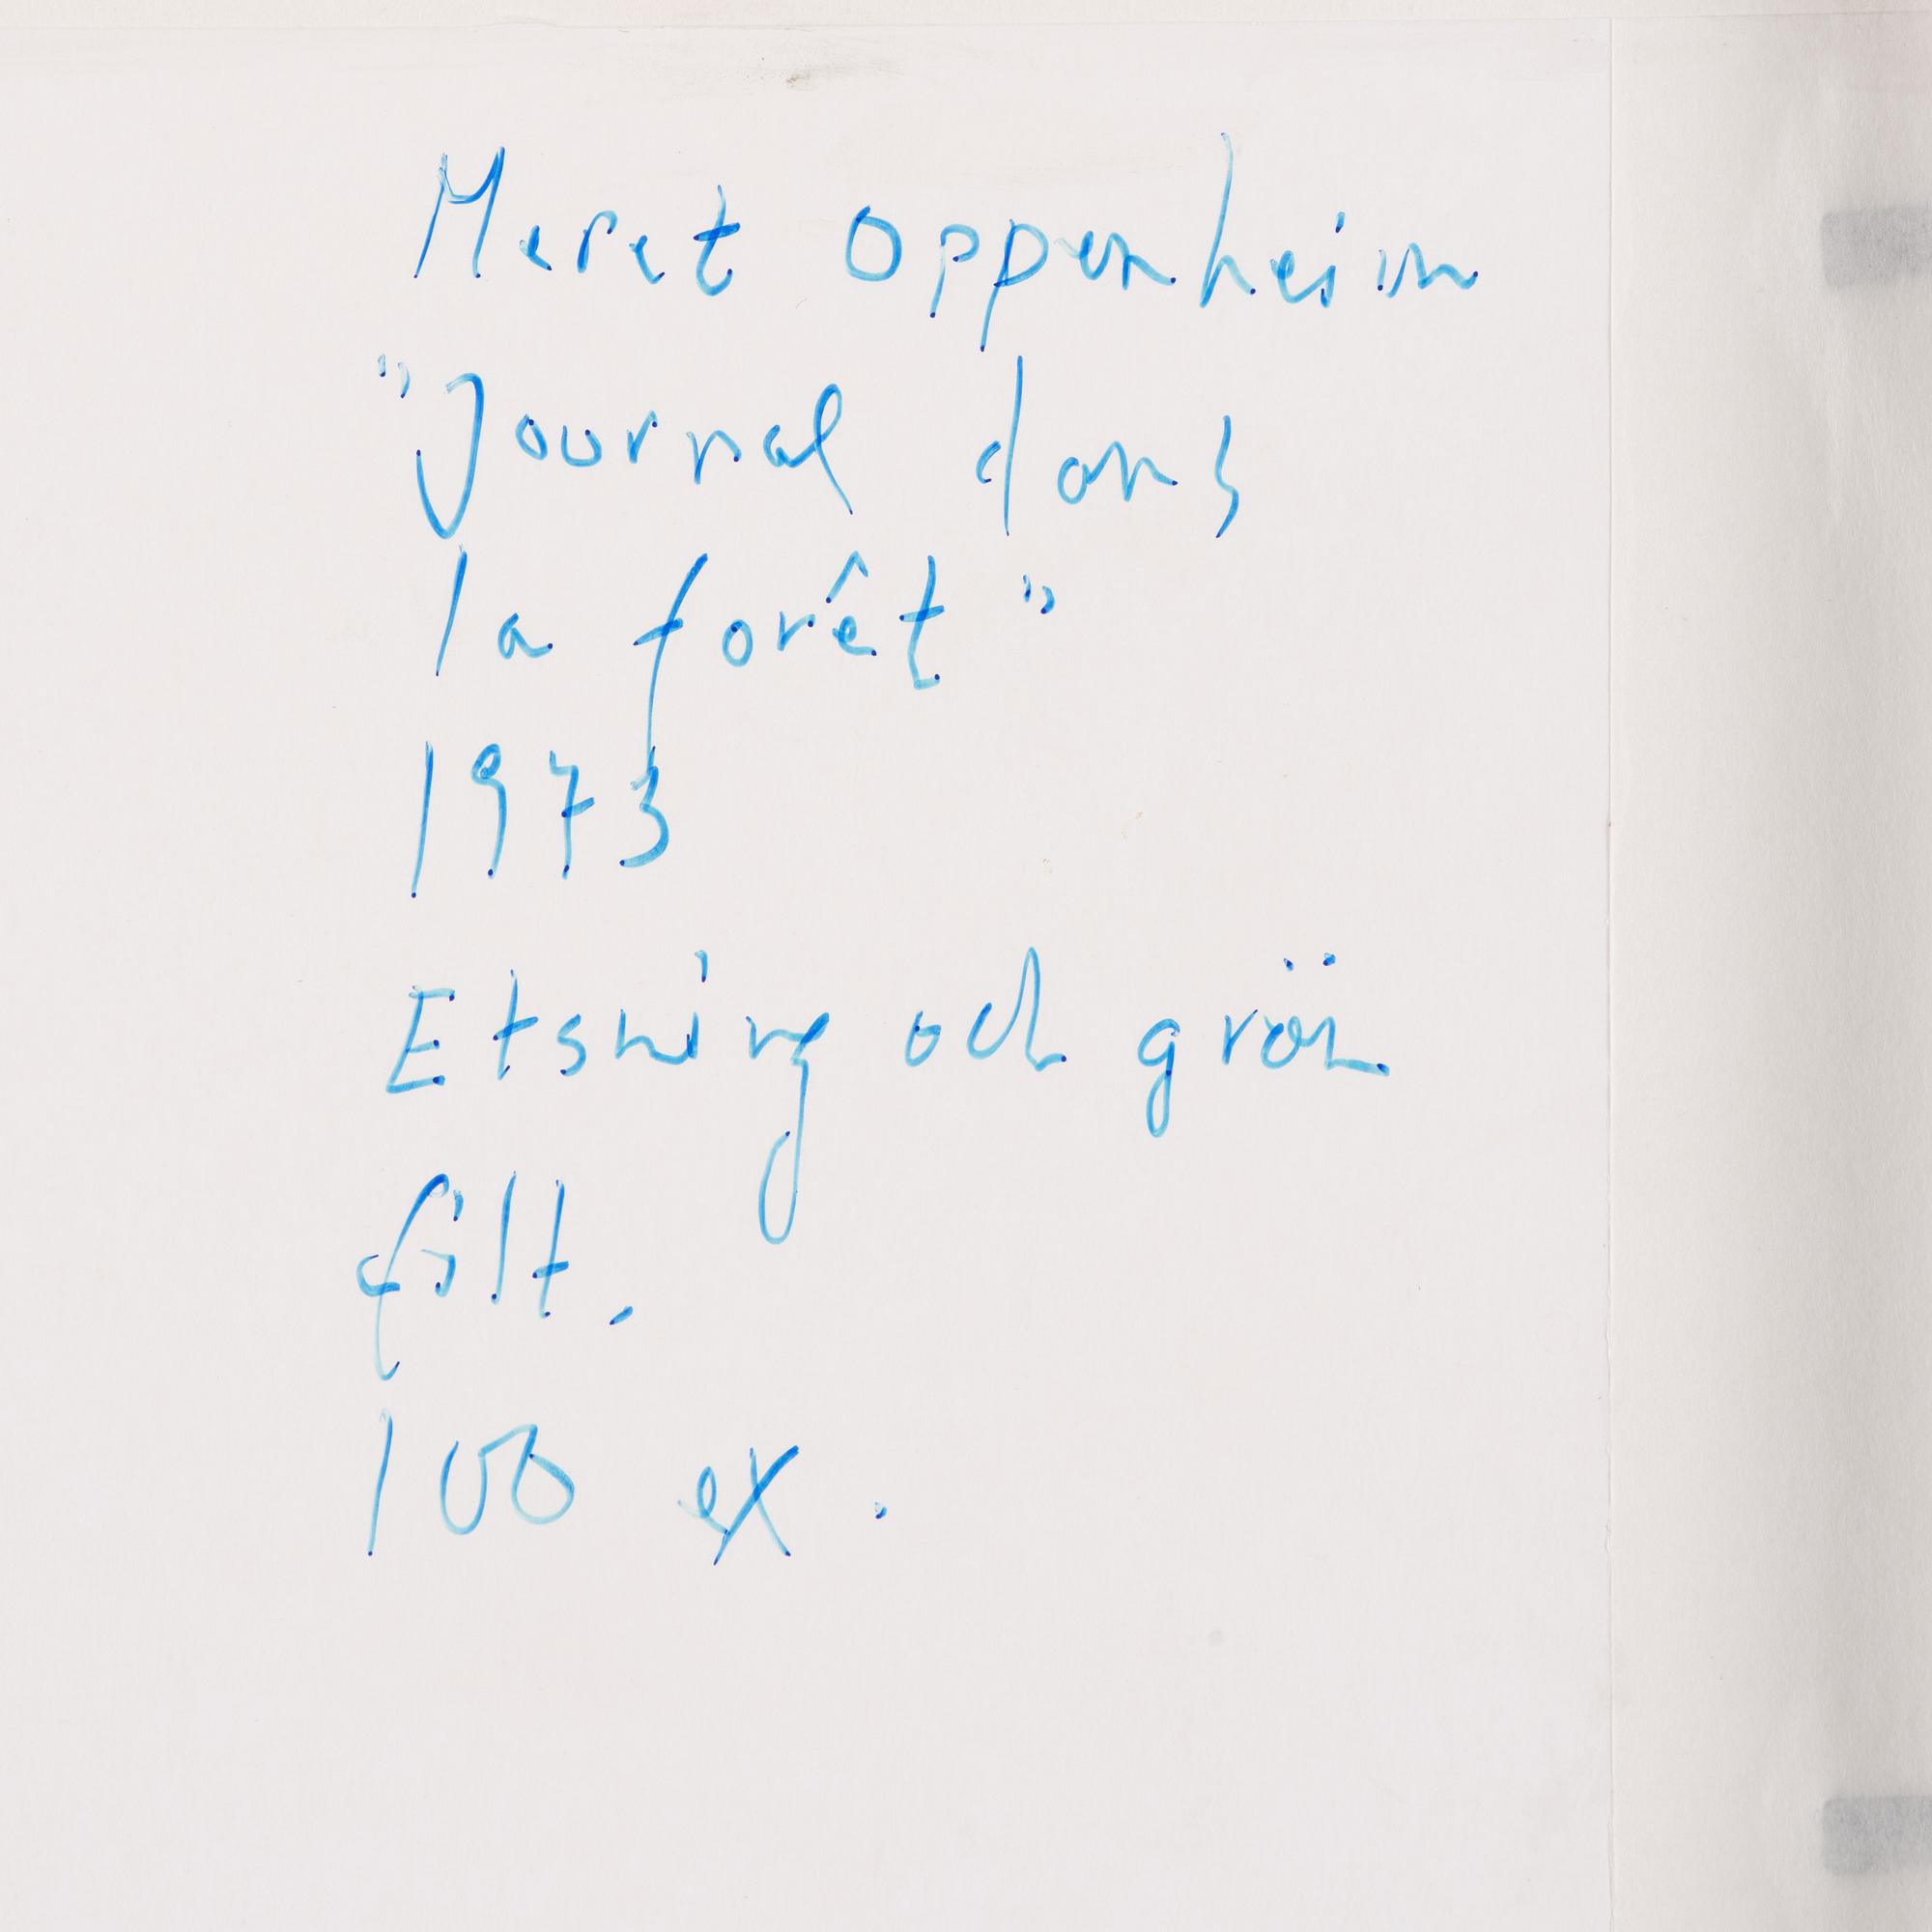 Meret Oppenheim
"Journal dans
la forêt"
1973
Etsning och grön
filt.
100 ex.